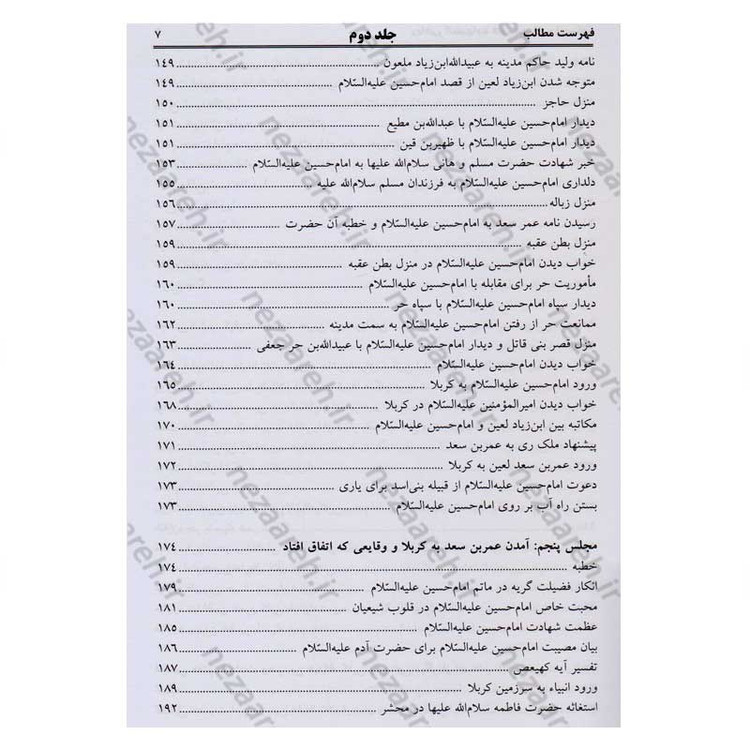 فهرست مطالب جلد دوم ۷
نامه ولید حاکم مدینه به عبیدالله‌ابن‌زیاد ملعون ۱۴۹
متوجه شدن ابن‌زیاد لعین از قصد امام‌حسین علیه‌السّلام ۱۴۹
منزل حاجز ۱۵۰
دیدار امام‌حسین علیه‌السّلام با عبدالله‌بن مطیع ۱۵۱
دیدار امام‌حسین علیه‌السّلام با ظهیربن قین ۱۵۱
خبر شهادت حضرت مسلم و هانی سلام‌الله علیها به امام‌حسین علیه‌السّلام ۱۵۳
دلداری امام‌حسین علیه‌السّلام به فرزندان مسلم سلام‌الله علیه ۱۵۵
منزل زباله ۱۵۶
رسیدن نامه عمر سعد به امام‌حسین علیه‌السّلام و خطبه آن حضرت ۱۵۷
منزل بطن عقبه ۱۵۹
خواب دیدن امام‌حسین علیه‌السّلام در منزل بطن عقبه ۱۵۹
مأموریت حر برای مقابله با امام‌حسین علیه‌السّلام ۱۶۰
دیدار سپاه امام‌حسین علیه‌السّلام با سپاه حر ۱۶۰
ممانعت حر از رفتن امام‌حسین علیه‌السّلام به سمت مدینه ۱۶۲
منزل قصر بنی قاتل و دیدار امام‌حسین علیه‌السّلام با عبیدالله‌بن حر جعفی ۱۶۳
خواب دیدن امام‌حسین علیه‌السّلام ۱۶۴
ورود امام‌حسین علیه‌السّلام به کربلا ۱۶۵
خواب دیدن امیرالمؤمنین علیه‌السّلام در کربلا ۱۶۸
مکاتبه بین ابن‌زیاد لعین و امام‌حسین علیه‌السّلام ۱۷۰
پیشنهاد ملک ری به عمربن سعد ۱۷۱
ورود عمربن سعد لعین به کربلا ۱۷۲
دعوت امام‌حسین علیه‌السّلام از قبیله بنی‌اسد برای یاری ۱۷۳
بستن راه آب بر روی امام‌حسین علیه‌السّلام ۱۷۳
مجلس پنجم: آمدن عمربن سعد به کربلا و وقایعی که اتفاق افتاد ۱۷۴
خطبه ۱۷۴
انکار فضیلت گریه در ماتم امام‌حسین علیه‌السّلام ۱۷۹
محبت خاص امام‌حسین علیه‌السّلام در قلوب شیعیان ۱۸۱
عظمت شهادت امام‌حسین علیه‌السّلام ۱۸۵
بیان مصیبت امام‌حسین علیه‌السّلام برای حضرت آدم علیه‌السّلام ۱۸۶
تفسیر آیه کهیعص ۱۸۷
ورود انبیاء به سرزمین کربلا ۱۸۹
استغاثه حضرت فاطمه سلام‌الله علیها در محشر ۱۹۲
nezaareh.ir